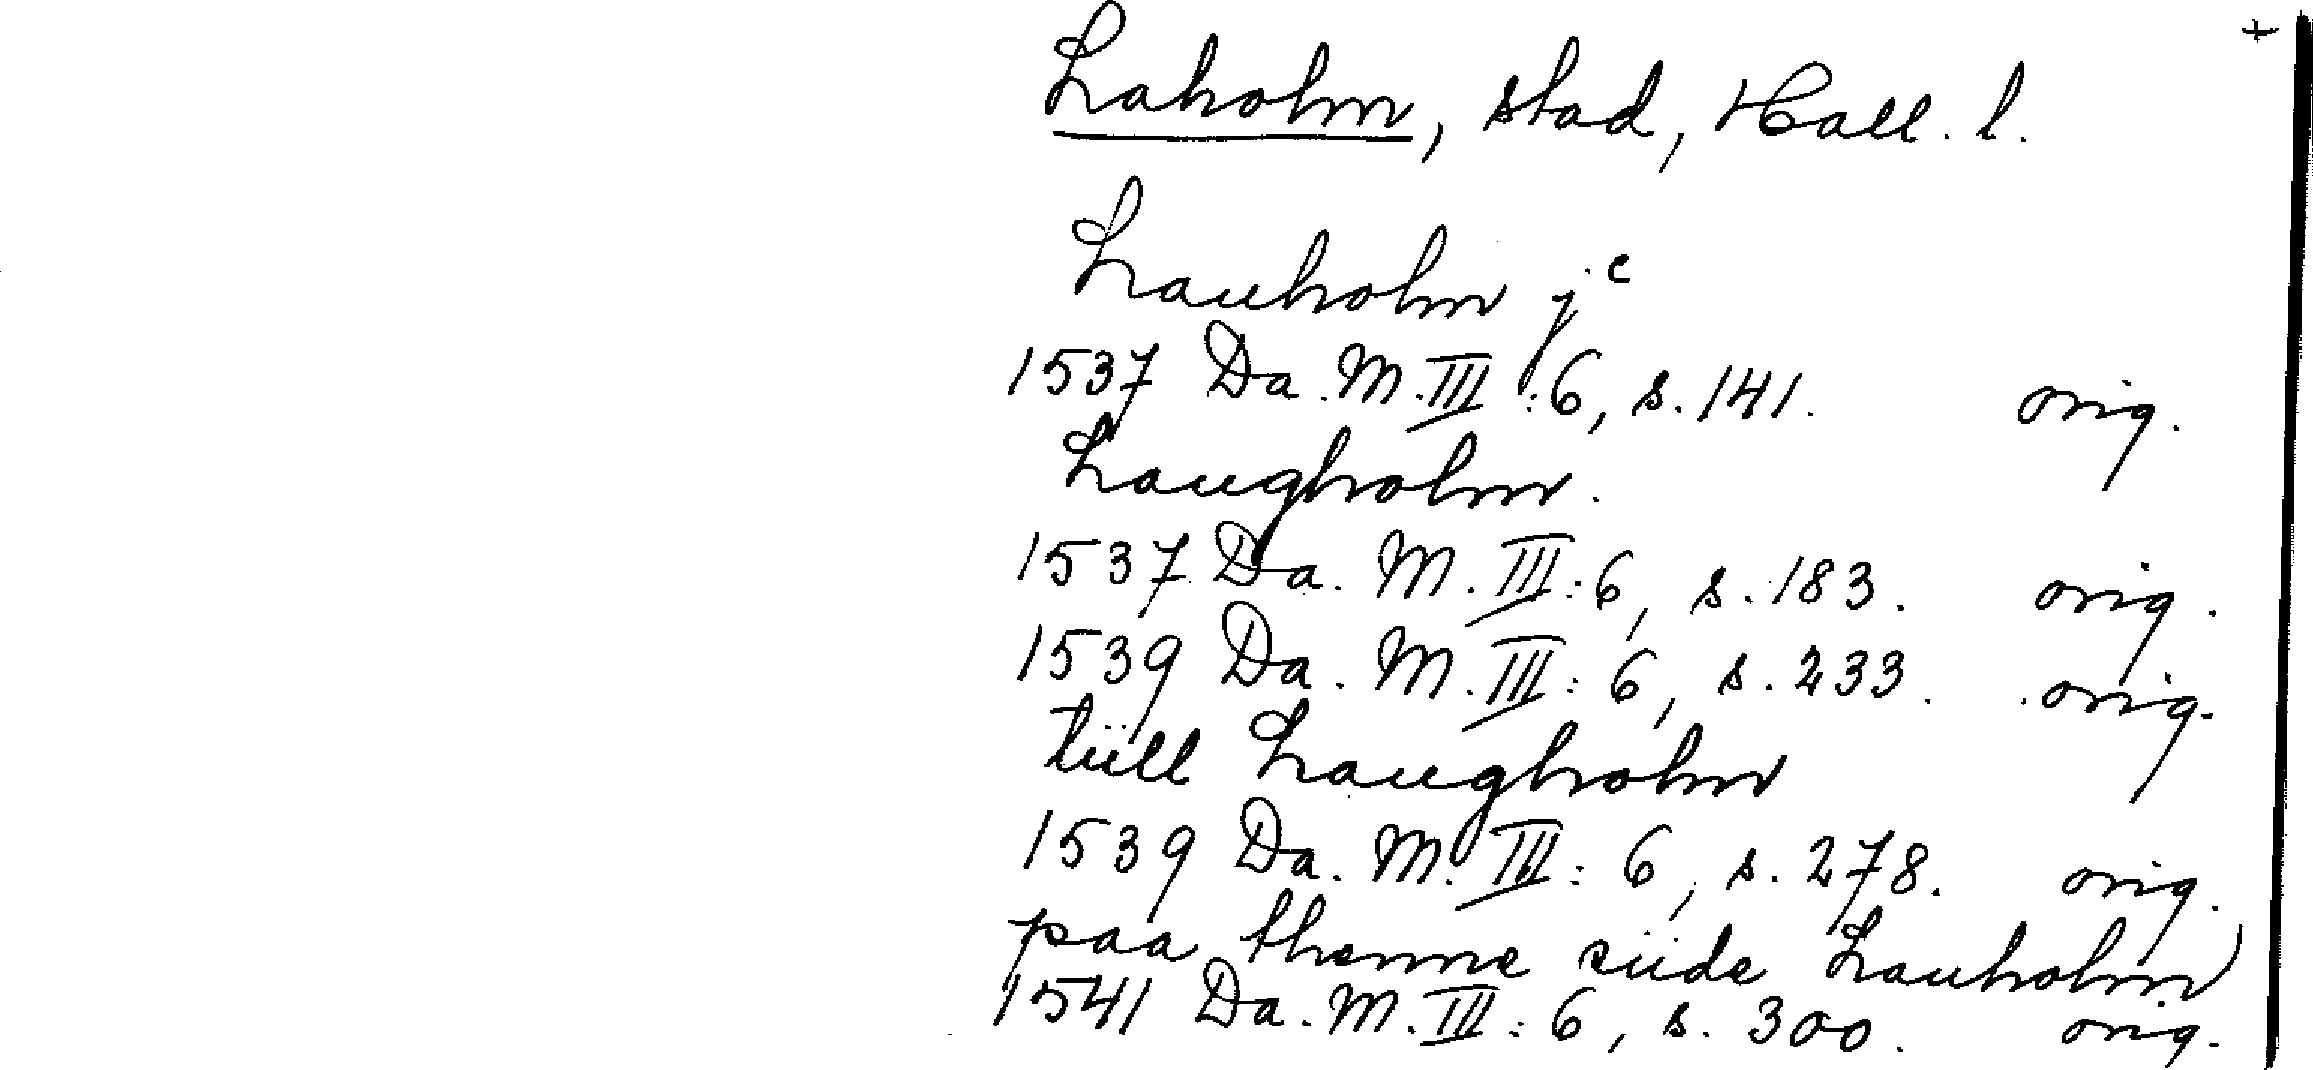 +
Laholm, stad, Hall. l.
Lauholm jc
1537 Da. M. III:6, s. 141. orig.
Laugholm.
1537 Da. M. III:6, s. 183. orig.
1539 Da. M. III:6, s. 233. orig.
tüll Laugholm
1539 Da. M. III:6, s. 278. orig.
paa thenne süde Lauholm
1541 Da. M. III:6, s. 300. orig.